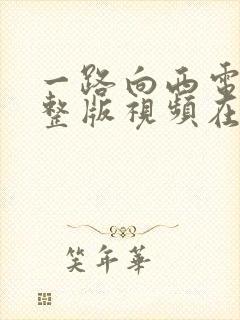 一路向西電
整版視頻在
笑年華